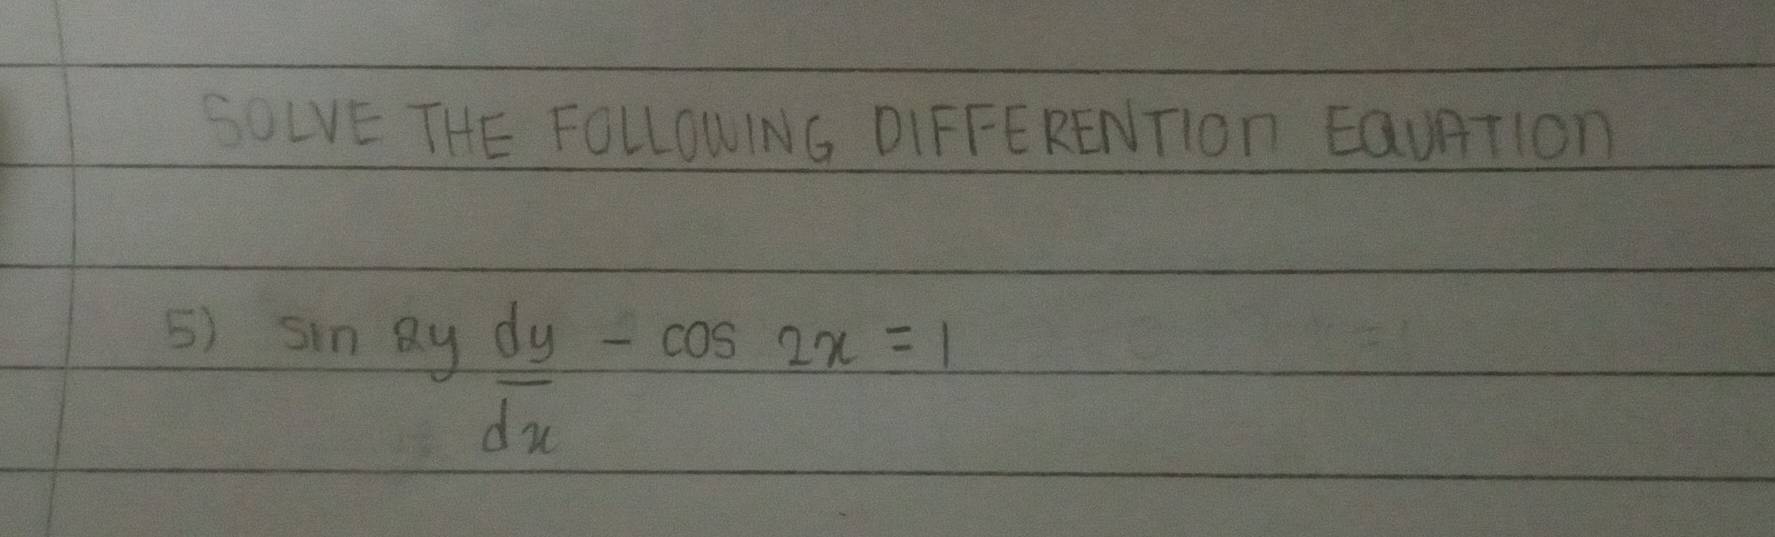 SOLVE THE FOLLOWING DIFFERENTION EQUATION
5) sin 2y dy/dx - cos 2x = 1